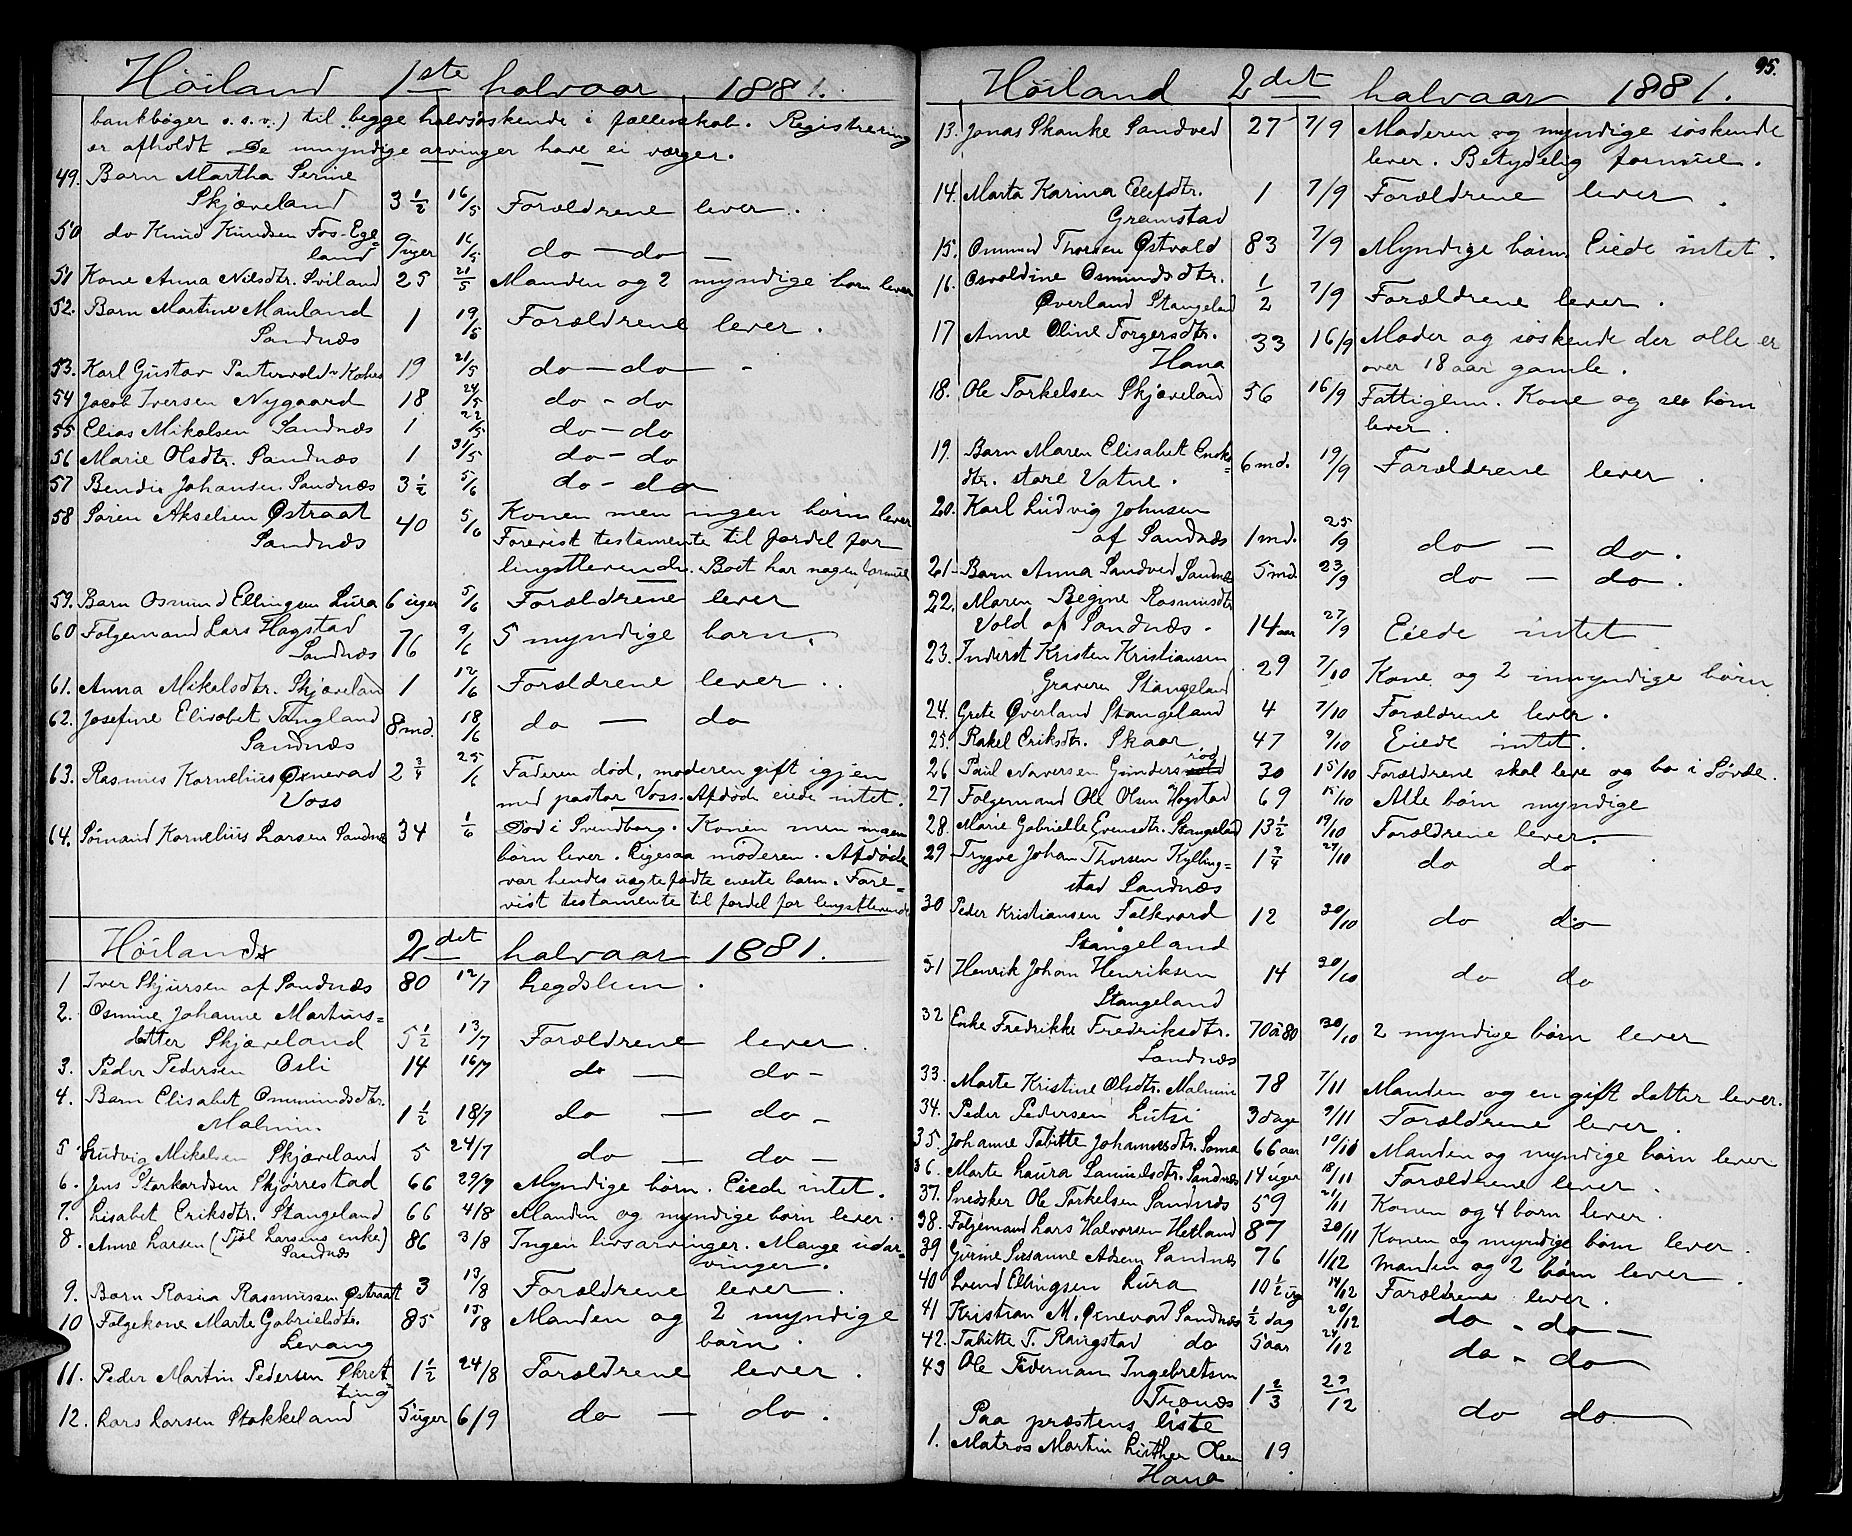 Höiland 1ste halvaar 1881.
bankbøger o.s.v.) til begge halvsøskende i fællesskab. Registrering
er afholdt De umyndige arvinger have ei værger.
49. Barn Martha Serine
Skjæveland 3 1/2 16/5 Forældrene lever.
50 do Knud Knudsen Fos-Ege-
land 9 uger 16/5 do — do —
51 Kone Anna Nilsdtr. Sviland 25 21/5 Manden og 2 myndige børn lever
52. Barn Martine Mauland
Sandnæs 1 19/5 Forældrene lever.
53. Karl Gustav 19 21/5 do — do -
54 Jacob Iversen Nygaard 18 24/5 do - do
55 Elias Mikalsen Sandnæs 1 22/5 do — do
56 Marie Olsdtr. Sandnæs 1 31/5 do — do
57 Bendix Johansen Sandnæs 3 1/2 5/6 do - do
58 Søren Akselsen Østraat 40 5/6 Konen men ingen børn lever
Sandnæs Forevist testamente til fordel for
længstlevende. Boet har nogen formue
59. Barn Osmund Ellingsen Lura 6 uger 5/6 Forældrene lever
60 Følgemand Lars Hogstad
Sandnæs 76 9/6 5 myndige børn.
61. Anna Mikalsdtr. Skjæveland 1 12/6 Forældrene lever.
62. Josefine Elisabet Tangland
Sandnæs 8 md. 18/6 do — do
63. Rasmus Kornelius Øxnevad
Voss 2 3/4 25/6 Faderen død, moderen gift igjen
med pastor Voss. Afdøde eiede intet.
64. Sømand Kornelius Larsen Sandnæs 34 1/6 Død i Svendborg. Konen men ingen
børn lever. Ligesaa moderen. Afdøde
var hendes uægtefødte eneste barn. Fore-
vist testamente til fordel for længstlevende
Höiland 2det halvaar 1881.
1 Iver Skjursen af Sandnæs 80 12/7 Legdslem.
2. Osmine Johanne Martins-
datter Skjæveland 5 1/2 13/7 Forældrene lever.
3. Peder Pedersen Osli 14 16/7 do — do -
4. Barn Elisabet Osmundsdtr.
Malmin. 1 1/2 18/7 do — do -
5. Ludvig Mikalsen Skjæveland 5 24/7 do — do -
6. Jens Storkardsen Skjørrestad 66 29/7 Myndige børn. Eiede intet.
7. Lisabet Eriksdtr. Stangeland 66 4/8 Manden og myndige børn lever.
8. Anne Larsen (Sjøl Larsens enke)
Sandnæs 86 3/8 Ingen livsarvinger. Mange udar-
vinger.
9. Barn Rasmus Østraat 3 13/8 Forældrene lever.
10 Følgekone Marte Gabrielsdtr.
Levang 85 15/8 Manden og 2 myndige
børn.
11. Peder Martin Pedersen Skret-
ting 1 1/2 24/8 Forældrene lever.
12. Lars Larsen Stokkeland 5 uger 6/9 do — do.
95.
Höiland 2det halvaar 1881.
13. Jonas Skanke Sandved 27 7/9 Moderen og myndige søskende
lever. Betydelig formue.
14. Marta Karina Elefsdtr.
Gramstad 1 7/9 Forældrene lever.
15. Osmund Thorsen Østvold 83 7/9 Myndige børn. Eiede intet.
16. Osvoldine Osmundsdtr.
Øverland Stangeland 1/2 7/9 Forældrene lever.
17 Anne Oline Torgersdtr.
Hana 33 16/9 Moder og søskende der alle er
over 18 aar gamle.
18. Ole Torkelsen Skjæveland 56 16/9 Fattiglem. Kone og børn
lever.
19. Barn Maren Elisabet
dtr. store Vatne. 6 md. 19/9 Forældrene lever.
20. Karl Ludvig Johnsen
af Sandnæs 1 md. 25/9 do — do.
21- Barn Anna Sandved Sandnæs 5 md 23/9 do — do.
22. Maren Regine Rasmusdtr
Vold af Sandnæs. 14 aar 27/9 Eiede intet
23. Inderst Kristen Kristiansen
Graveren Stangeland 29 7/10 Kone og 2 umyndige børn
24. Grete Øverland Stangeland 4 7/10 Forældrene lever.
25. Rakel Eriksdtr. Skaar 47 9/10 Eiede intet.
26 Paul Naversen Gundersrød 30 15/10 Forældrene skal leve og bo i Søvde.
27 Følgemand Ole Olsen Hogstad 69 15/10 Alle børn myndige
28. Marie Gabrielle Evensdtr. Stangeland 13 1/2 19/10 Forældrene lever.
29 Trygve Johan Thorsen Kylling-
stad Sandnæs 1 3/4 27/10 do do
30 Peder Kristiansen Folkvord
Stangeland 12 30/10 do do
31 Henrik Johan Henriksen
Stangeland 14 30/10 do do
32 Enke Fredrikke Fredriksdtr.
Sandnæs 70 à 80 30/10 2 myndige børn lever
33. Marte Kristine Olsdtr. Malmin 78 7/11 Manden og en gift datter lever.
34. Peder Pedersen Lutsi 3 dage 9/11 Forældrene lever.
35. Johanne Tabitte Johannesdtr. Soma 66 aar 10/11 Manden og myndige børn lever
36. Marte Laura Samuelsdtr. Sandnæs 14 uger 18/11 Forældrene lever.
37. Snedker Ole Torkelsen Sandnæs 59 21/11 Konen og 4 børn lever.
38. Følgemand Lars Halvorsen Hetland 87 30/11 Konen og myndige børn lever.
39 Gurine Susanne Adsen Sandnæs 76 1/12 Manden og 2 børn lever.
40 Svend Ellingsen Lura 10 1/2 ug 14/12 Forældrene lever.
41 Kristian M. Øxnevad Sandnæs 1/2 dag 20/12 do - do —
42. Tabitte T. Rangstad do 5 aar 24/12 do - do
43 Ole Tideman Ingebretsen
Tronæs 1 2/3 29/12 do do
Paa præstens liste
1. Matros Martin Luther Olsen
Hana 19